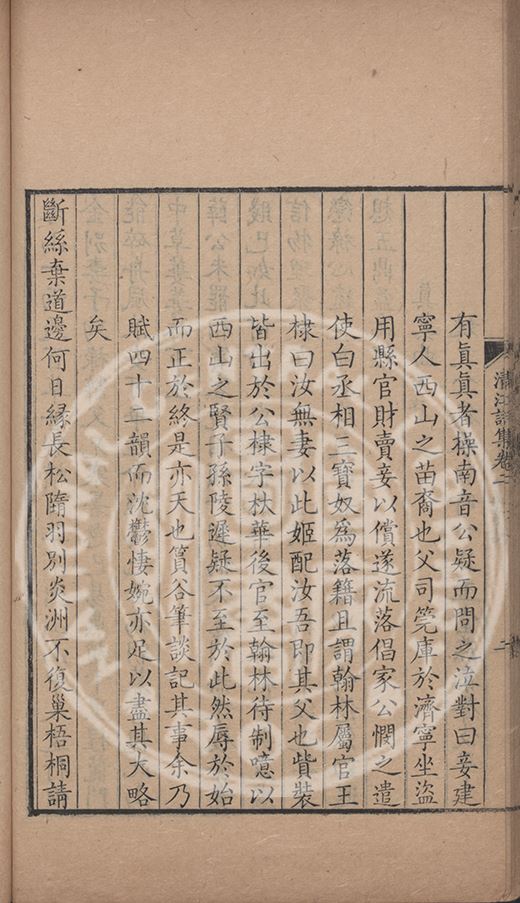 清江詩集卷二
二
有真真者操南音公疑而問之泣對曰妾建
寧人西山之苗裔也父司筦庫於濟寧坐盜
用縣官財賣妾以償遂流落倡家公憫之遣
使白丞相三寶奴為落籍且謂翰林屬官王
棣曰汝無妻以此姬配汝吾即其父也貲裝
皆出於公棣字栻華後官至翰林待制噫以
西山之賢子孫陵遲疑不至於此然辱於始
而正於終是亦天也篔谷筆談記其事余乃
賦四十二韻而沈鬱悽婉亦足以盡其大略
矣
斷絲棄道邊何日緣長松隋羽別炎洲不復巢梧桐請